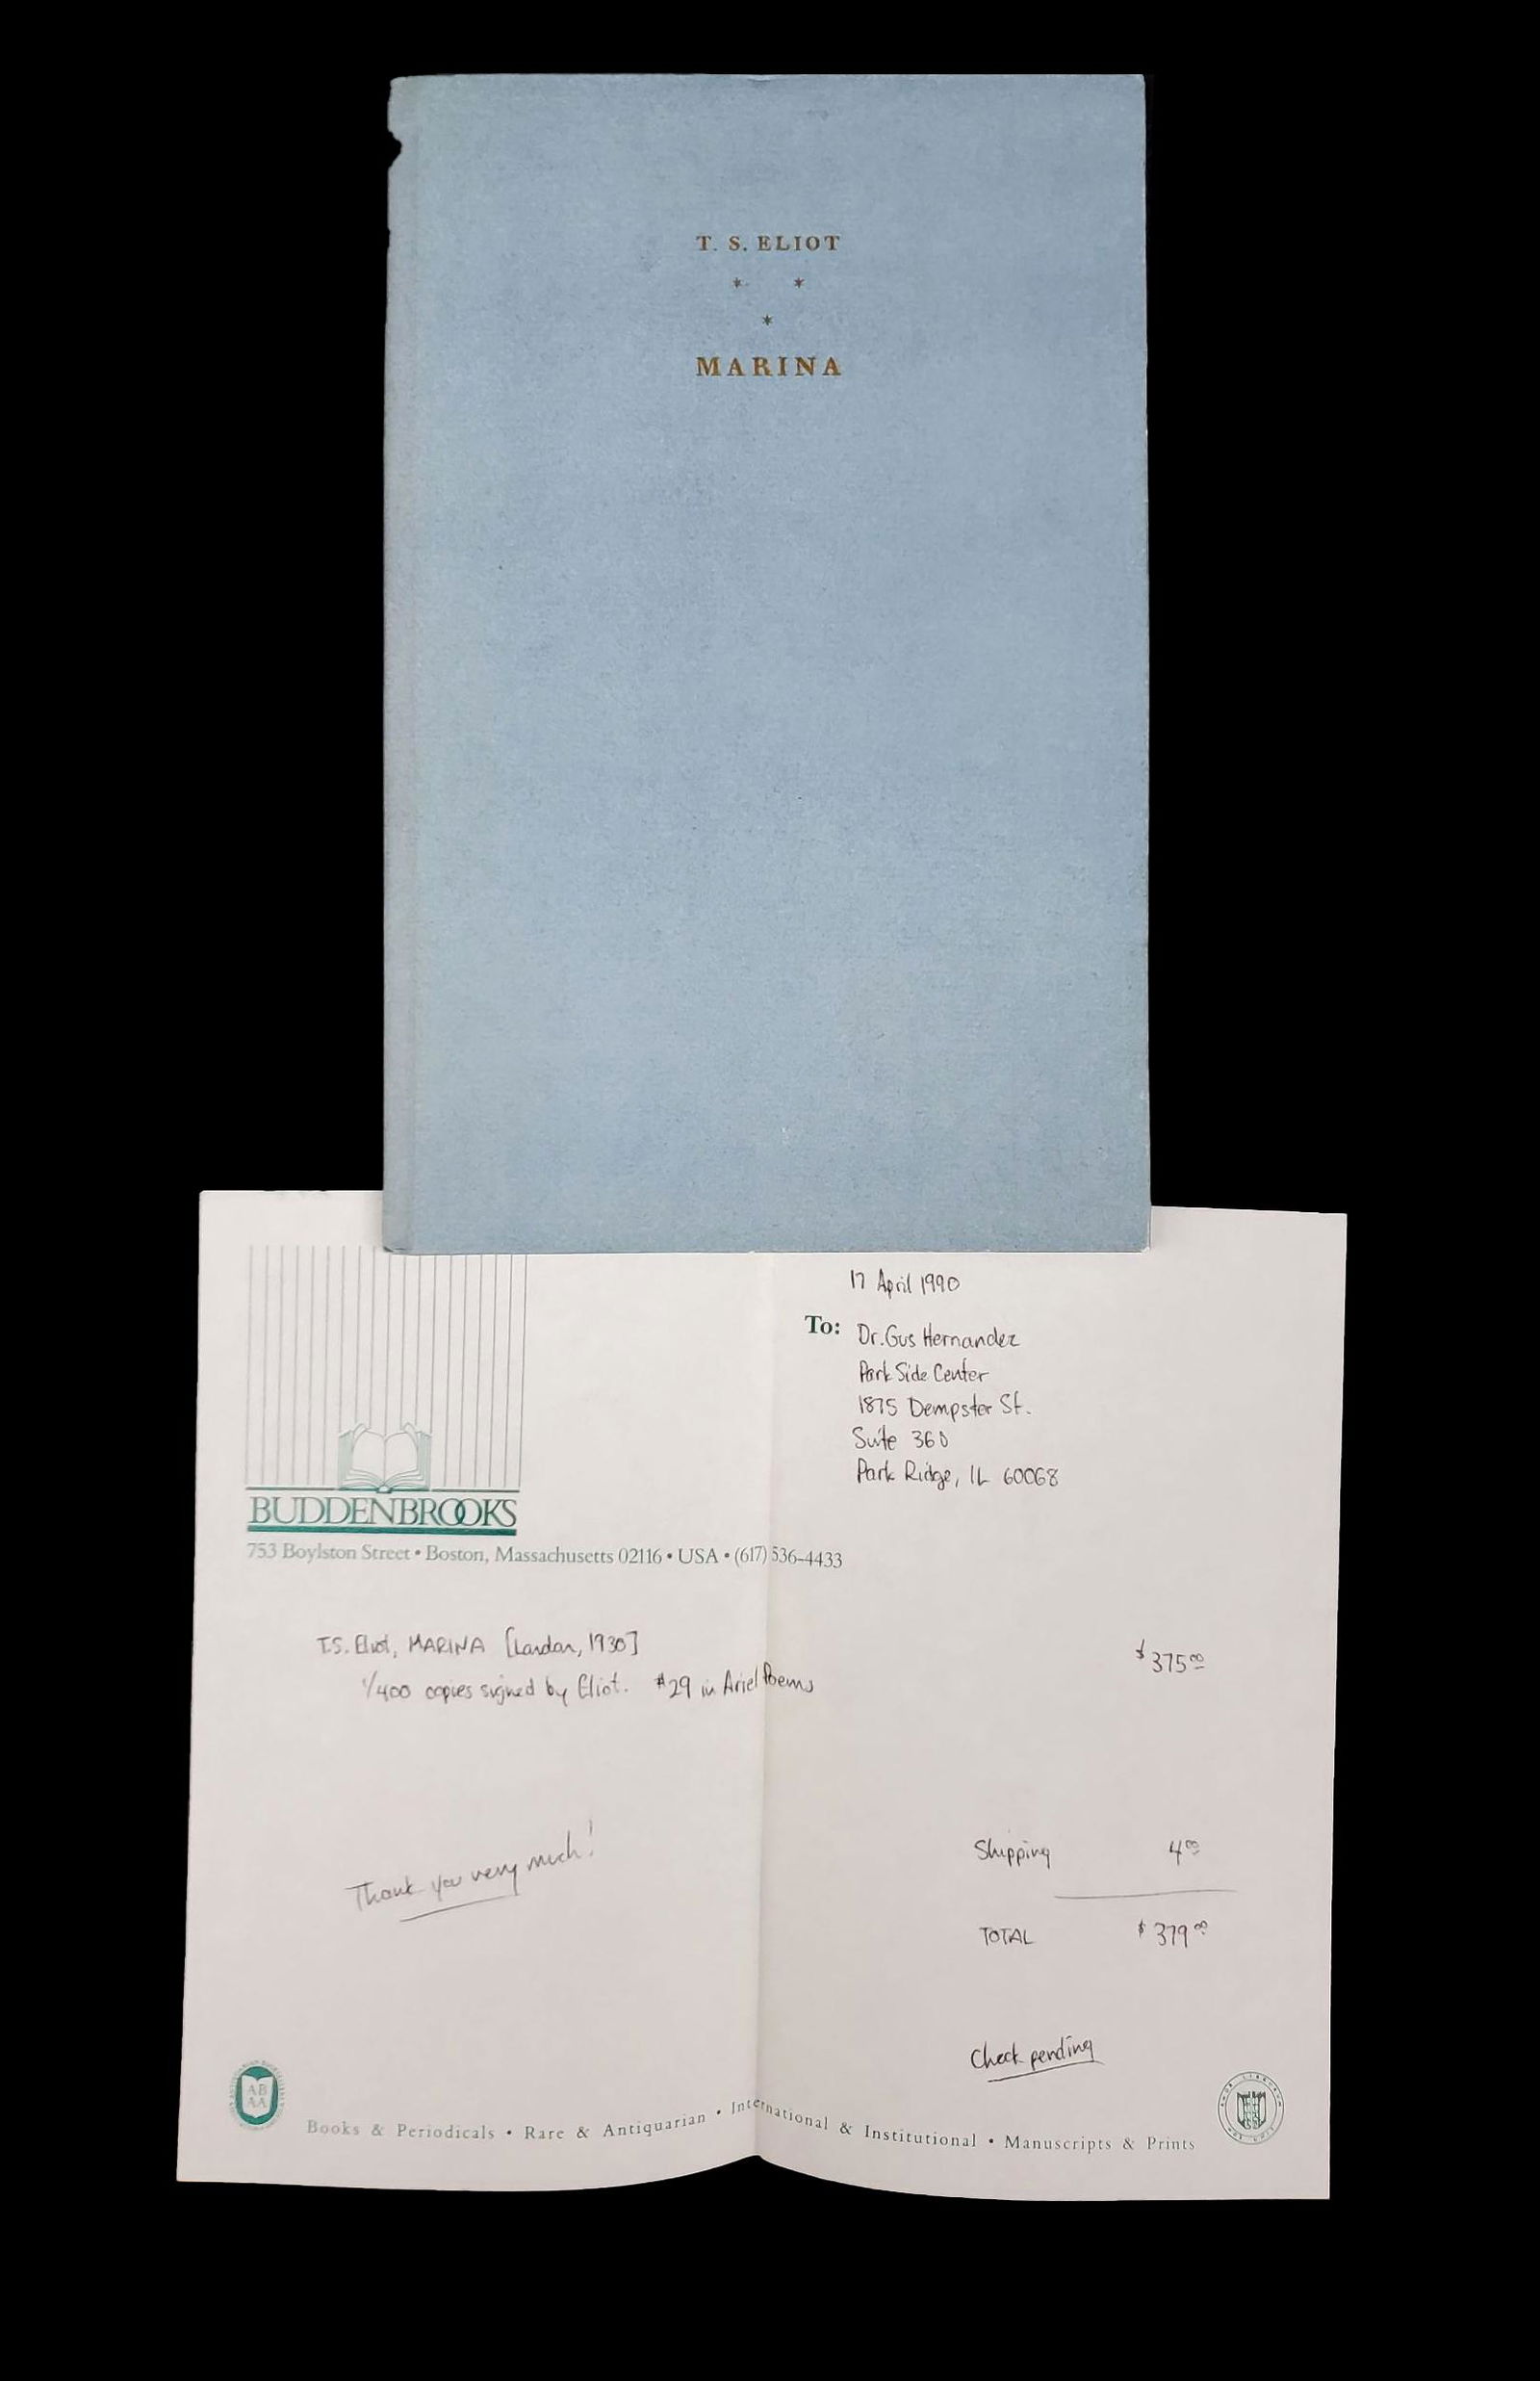 T. S. ELIOT
* *
*
MARINA
17 April 1990
To: Dr. Gus Hernandez
Park Side Center
1875 Dempster St.
Suite 360
Park Ridge, IL 60068
BUDDENBROOKS
753 Boylston Street • Boston, Massachusetts 02116 • USA • (617) 536-4433
T.S. Eliot, MARINA [London, 1930] $375.00
1/400 copies signed by Eliot. #29 in Ariel Poems
Thank you very much!
Shipping 4.00
TOTAL $379.00
Check pending
AB
AA
Books & Periodicals • Rare & Antiquarian • International & Institutional • Manuscripts & Prints